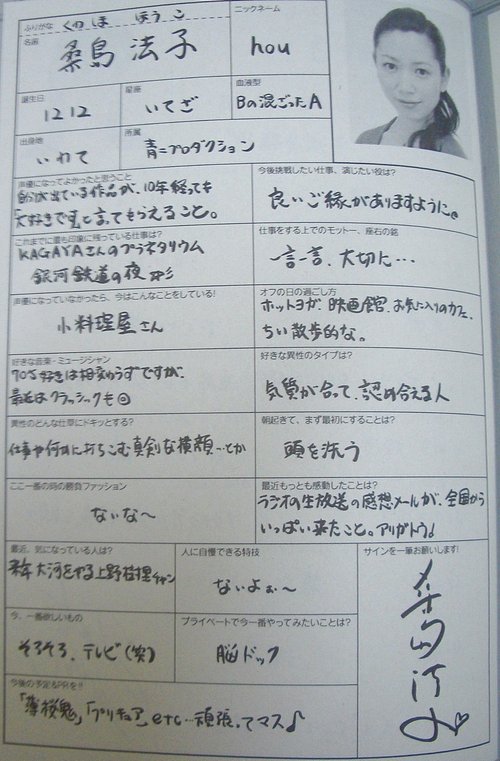 ふりがな くわしま ほうこ
ニックネーム
名前 桑島 法子
hou
誕生日 1212
星座 いてざ
血液型 Bの混ごったA
出身地 いわて
所属 青二プロダクション
声優になってよかったと思うこと
自分が出ている作品が、10年経っても
「大好きです」と言ってもらえること。
今後挑戦したい仕事、演じたい役は?
良いご縁がありますように。
これまでに最も印象に残っている仕事は?
KAGAYAさんのプラネタリウム
銀河鉄道の夜
仕事をする上でのモットー、座右の銘
一言一言、大切に…
声優になっていなかったら、今はこんなことをしている!
小料理屋さん
オフの日の過ごし方
ホットヨガ、映画館、お気に入りのカフェ、
ちい散歩的な。
好きな音楽・ミュージシャン
70's好きは相変わらずですが、
最近はクラッシックも
好きな異性のタイプは?
気質が合って、認め合える人
異性のどんな仕草にドキッとする?
仕事や何かに打ちこむ真剣な横顔…とか
朝起きて、まず最初にすることは?
頭を洗う
ここ一番の時の勝負ファッション
ないな〜
最近もっとも感動したことは?
ラジオの生放送の感想メールが、全国から
いっぱい来たこと。アリガトウ♪
最近、気になっている人は?
来年大河をやる上野樹里チャン
人に自慢できる特技
ないよぉ〜
サインを一筆お願いします!
桑島法子♡
今、一番欲しいもの
そろそろ、テレビ(笑)
プライベートで今一番やってみたいことは?
脳ドック
今後の予定&PRを!!
「薄桜鬼」、「プリキュア」etc…頑張ってマス♪